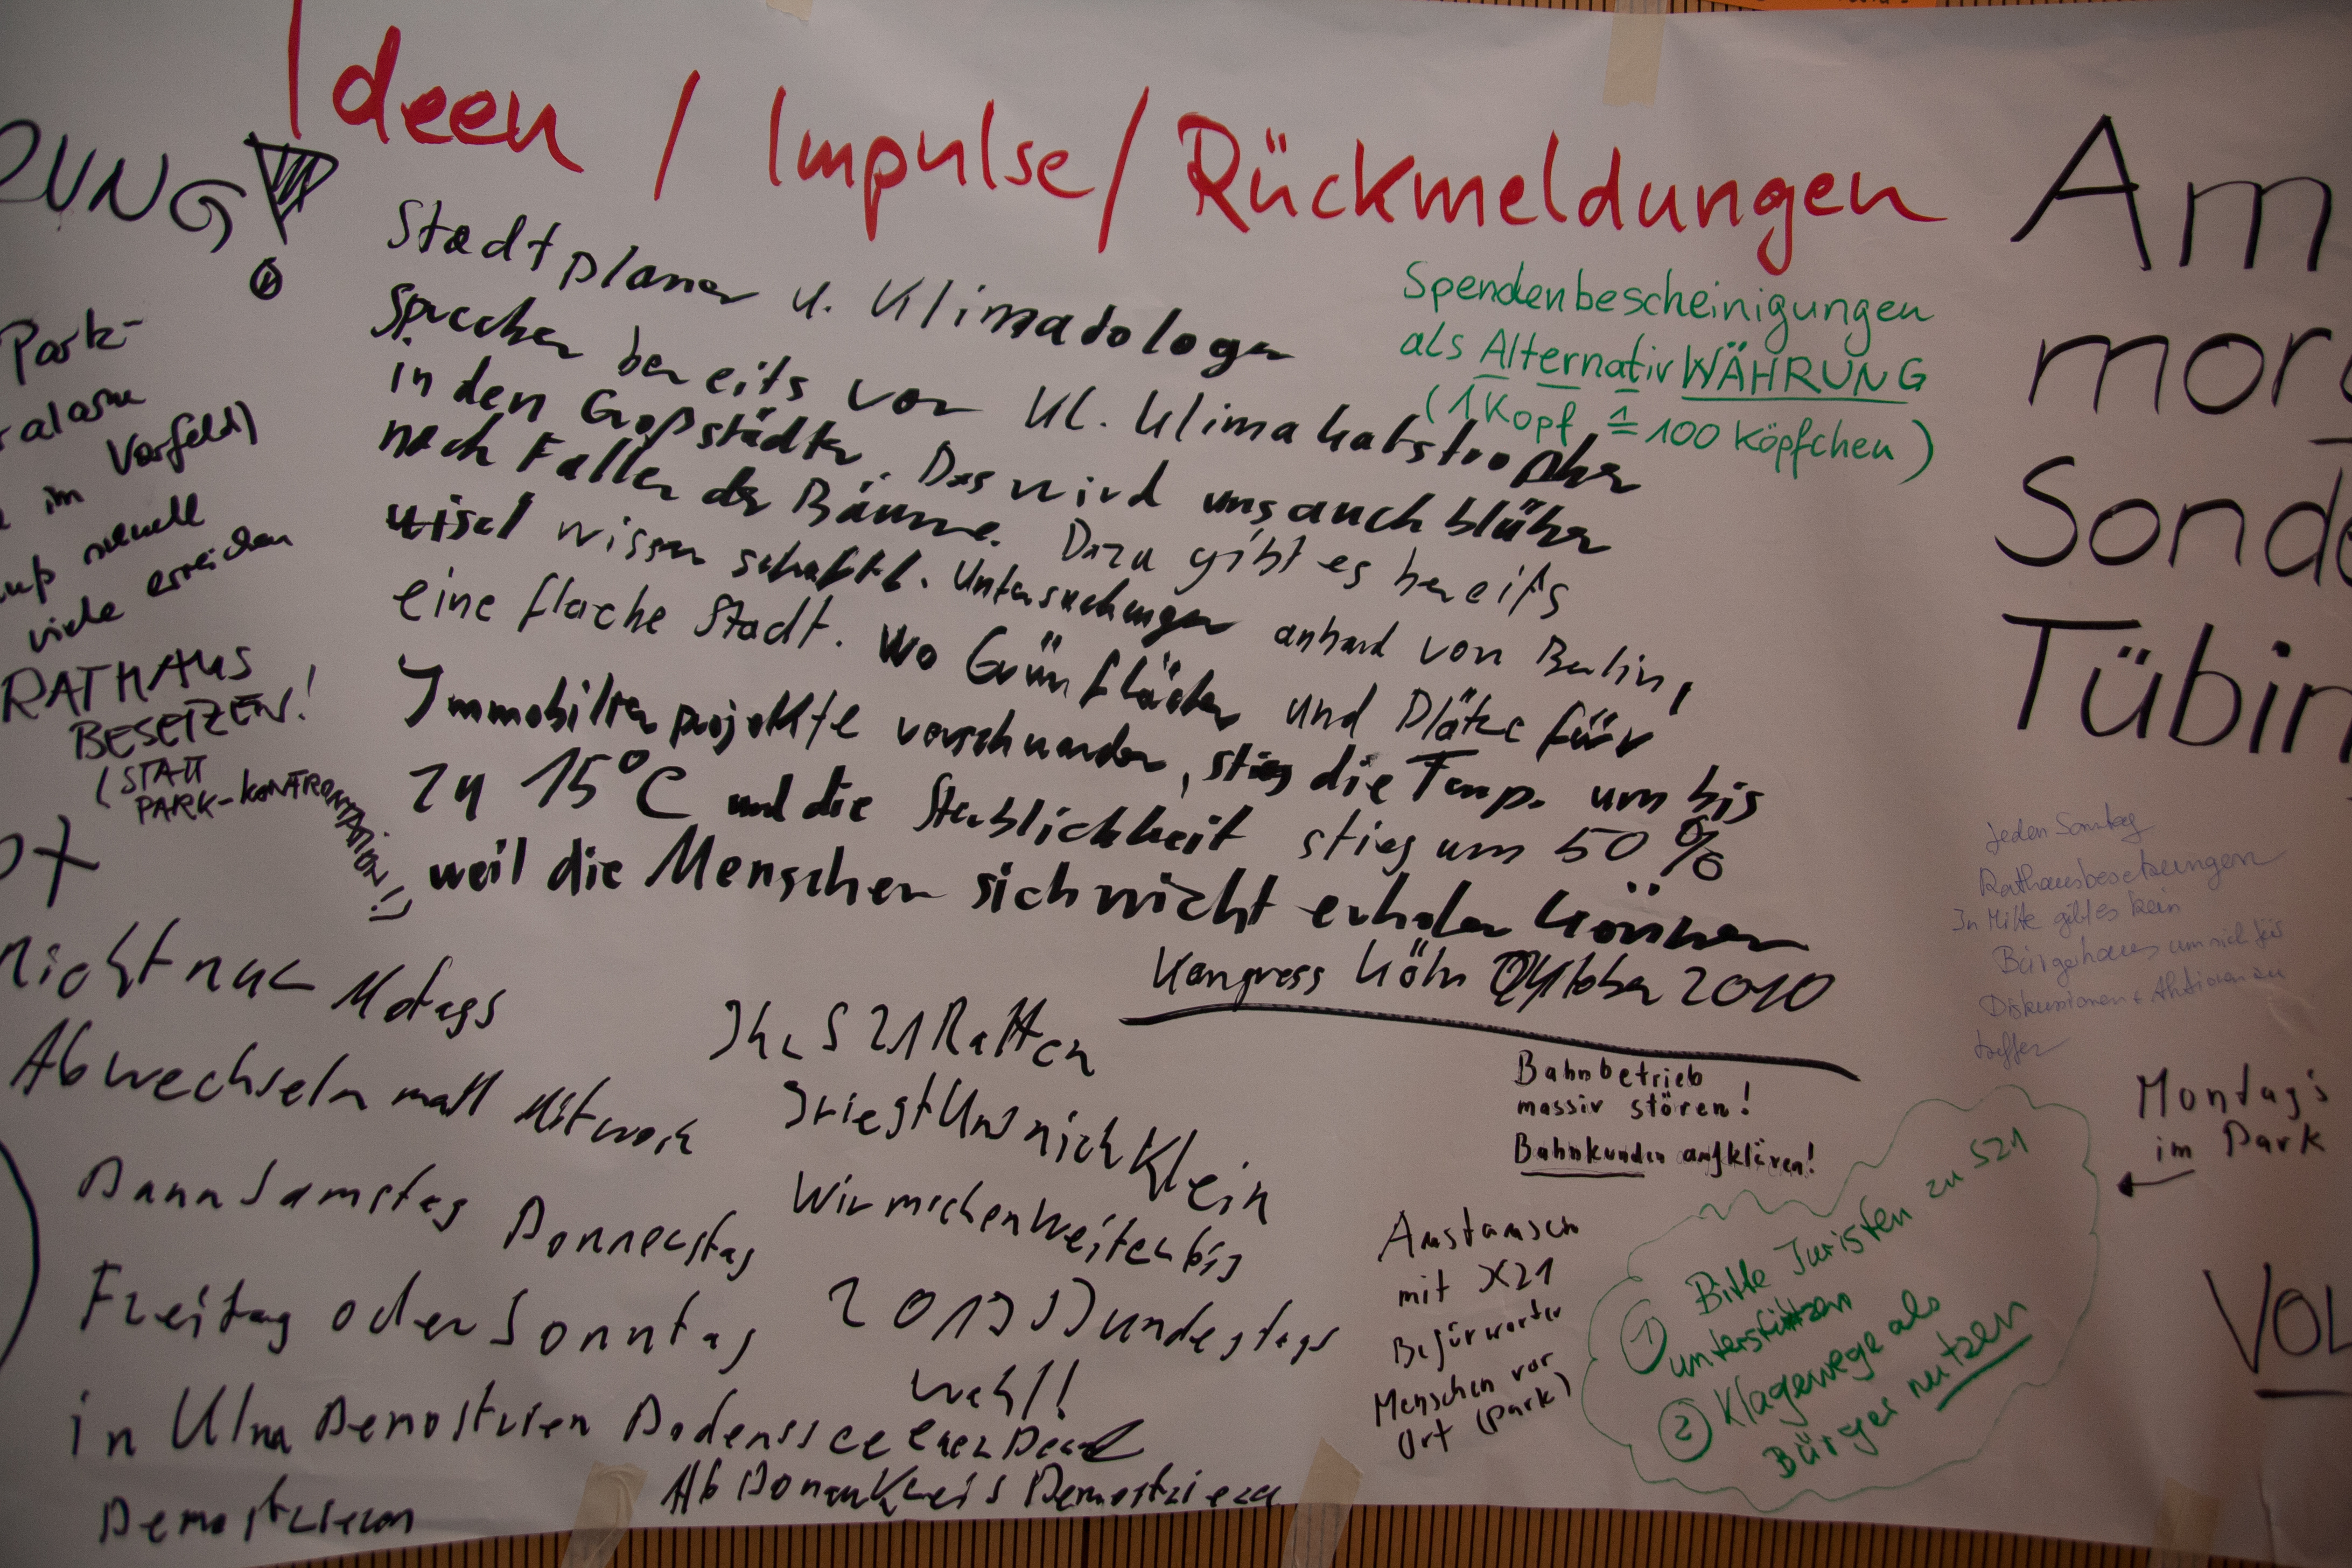 Ideen / Impulse / Rückmeldungen
RUNG!
Park-
im Vorfeld)
viele erreichen
RATHAUS
BESETZEN!
(STATT
PARK-KONFRONTATION!)
Stadtplaner u. Klimatologen
sprechen bereits von kl. Klimakatastrophen
in den Großstädten. Das wird uns auch blühen
nach Fallen der Bäume. Dazu gibt es bereits
wissenschaftl. Untersuchungen anhand von Berlin,
eine flache Stadt. Wo Grünflächen und Plätze für
Immobilienprojekte verschwanden, stieg die Temp. um bis
zu 15°C und die Sterblichkeit stieg um 50 %
weil die Menschen sich nicht erholen können
Kongress Köln Oktober 2010
Spendenbescheinigungen
als AlternativWÄHRUNG
(1 Kopf ≙ 100 Köpfchen)
Am
Sonde
Tübin
Jeden Sonntag
Rathausbesetzungen
In Mitte gibt es kein
Bürgerhaus um sich für
Diskussionen + Aktionen zu
treffen
nicht nur Motags
Abwechseln mall Mitwoch
Dann Samstag Donnerstag
Freitag oder Sonntag
in Ulm Demostrien Bodenssee
Demostrieren
Ihr S21 Ratten
kriegt Uns nich Klein
Wir machen Weiter bis
2013 Bundestags
wahl!
Ab Donau Kreis Demostrieren
Bahnbetrieb
massiv stören!
Bahnkunden aufklären!
Austausch
mit K21
Befürworter
Menschen vor
Ort (Park)
Montag's
im Park
① Bitte Juristen zu S21
unterstützen
② Klagewege als
Bürger nutzen
VOL